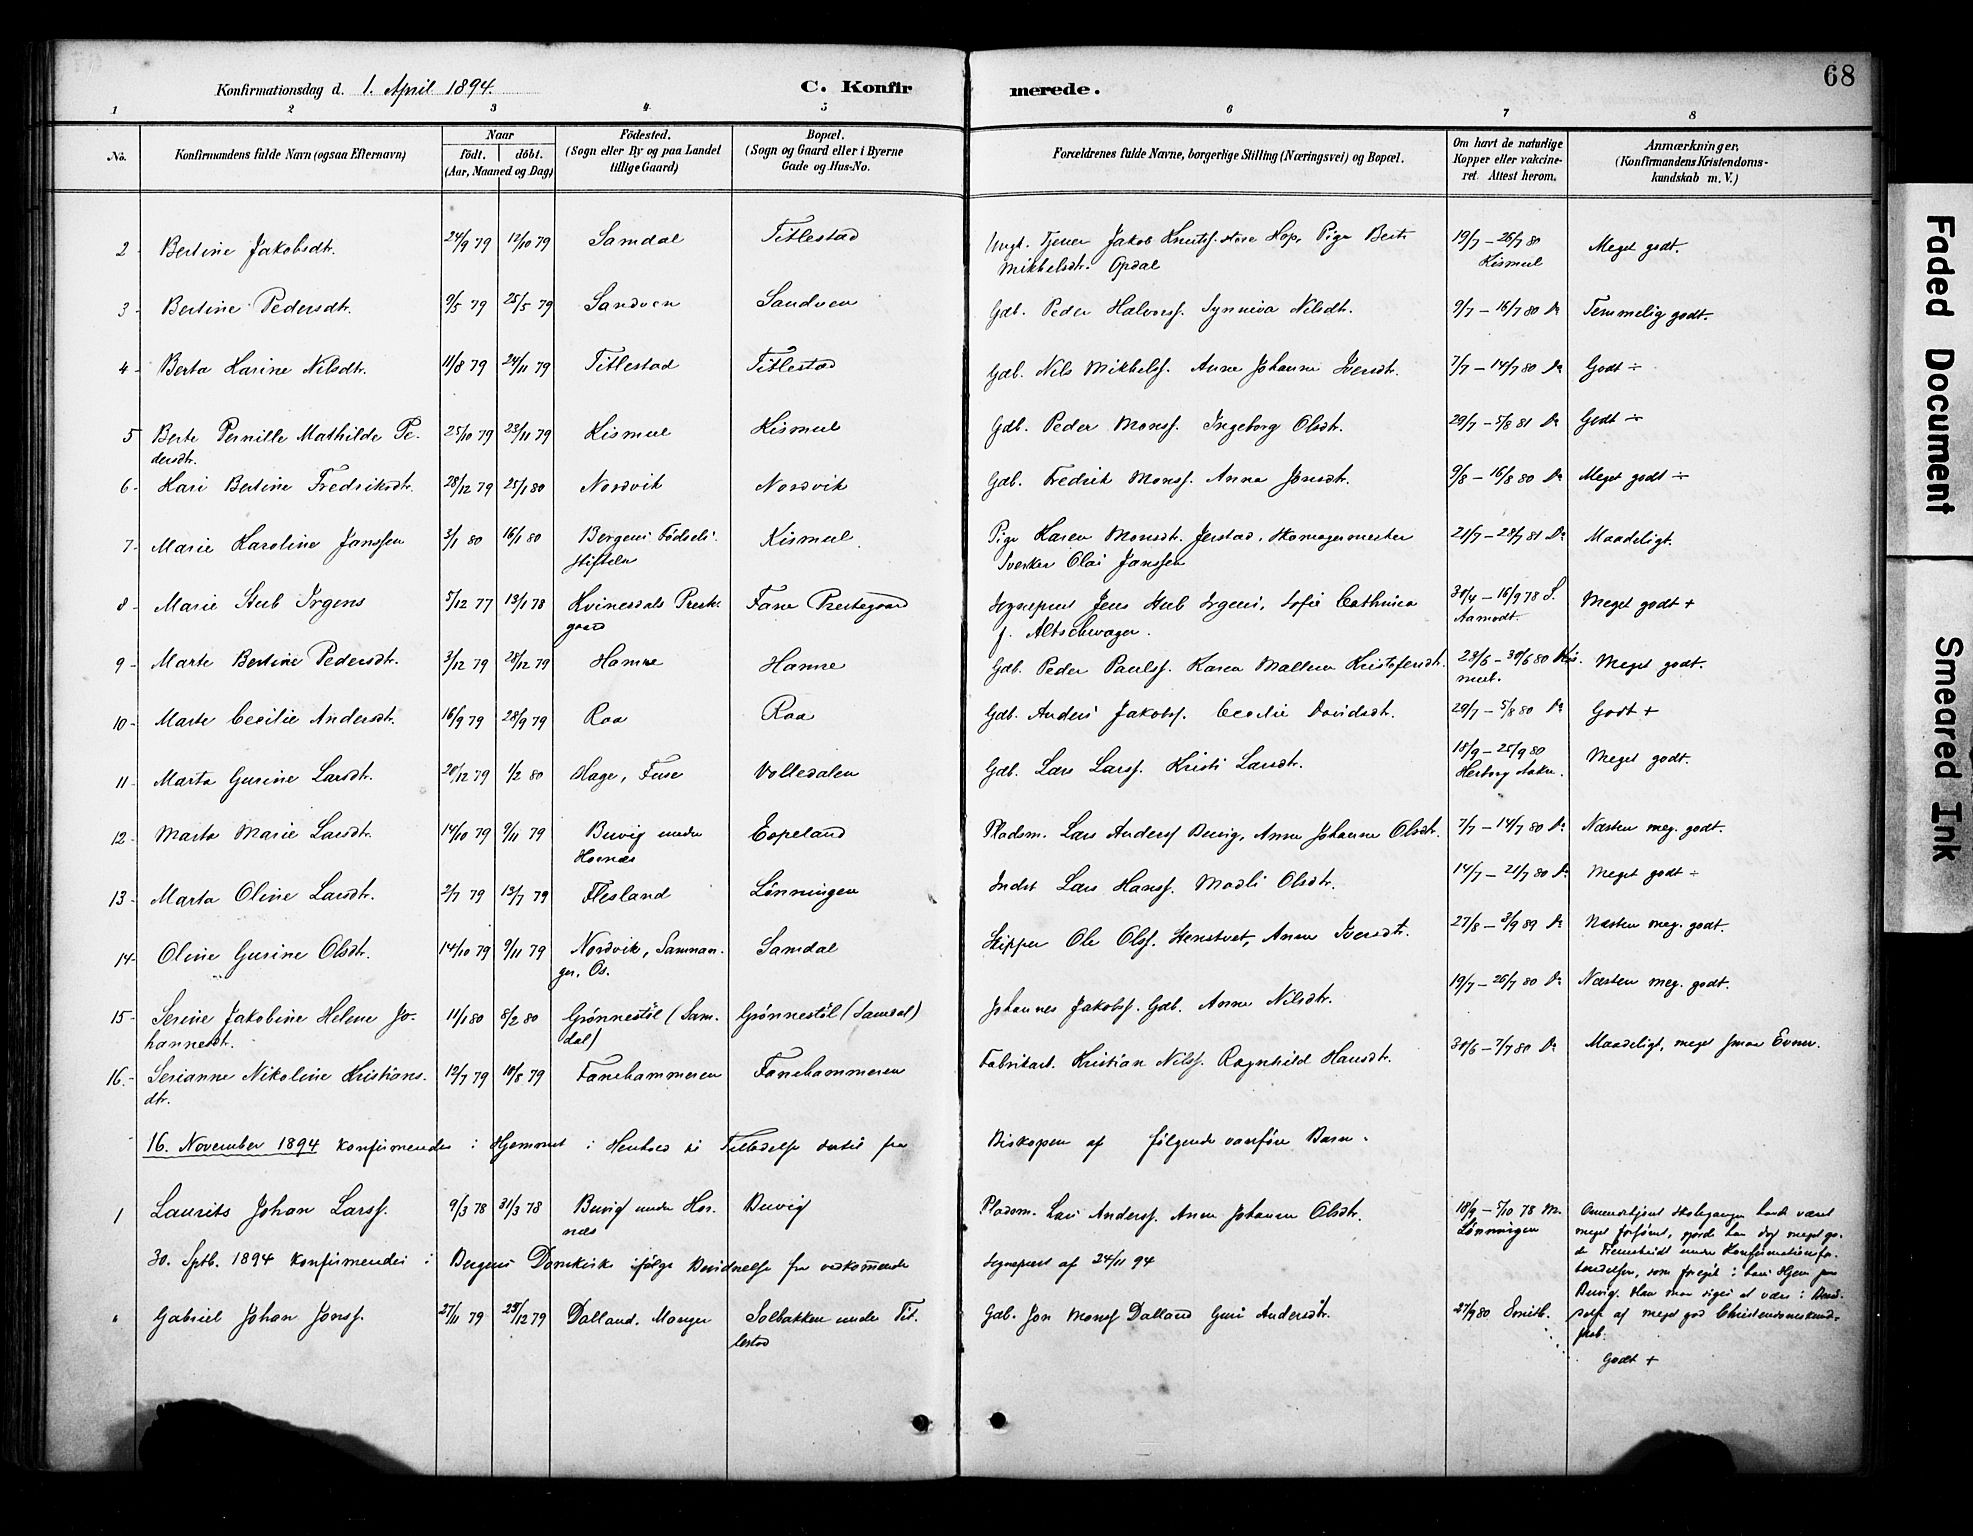 68
Konfirmationsdag d. 1. April 1894.
C. Konfirmerede.
1 2 3 4 5 6 7 8
No.
Konfirmandens fulde Navn (ogsaa Efternavn)
Naar
födt. | döbt.
(Aar, Maaned og Dag)
Födested.
(Sogn eller By og paa Landet
tillige Gaard)
Bopæl.
(Sogn og Gaard eller i Byerne
Gade og Hus-No.
Forældrenes fulde Navne, borgerlige Stilling (Næringsvei) og Bopæl.
Om havt de naturlige
Kopper eller vakcine-
ret. Attest herom.
Anmærkninger.
(Konfirmandens Kristendoms-
kundskab m. V.)
2 - Bertine Jakobsdtr. 24/9 79 12/10 79 Samdal Titlestad Ungk. Tjener Jakob Knutsf. Hop, Pige Berte 19/7 - 26/7 80 Meget godt.
Mikkelsdtr. Opdal Kismul
3 - Bertine Pedersdtr. 9/5 79 25/5 79 Sandven Sandven Gdb. Peder Halvorsf. Synneva Nilsdtr. 9/7 - 16/7 80 Do Temmelig godt.
4 - Berta Karine Nilsdtr. 11/8 79 24/11 79 Titlestad Titlestad Gdb. Nils Mikkelsf. Anna Johanna Iversdtr. 7/7 - 14/7 80 Do Godt ÷
5 Berte Pernille Mathilde Pe- 25/10 79 23/11 79 Kismul Kismul Gdb. Peder Monsf. Ingeborg Olsdtr. 29/7 - 5/8 81 Do Godt ÷
dersdtr.
6 - Kari Bertine Fredriksdtr. 28/12 79 25/1 80 Nordvik Nordvik Gdb. Fredrik Monsf. Anna Jonsdtr. 9/8 - 16/8 80 Do Meget godt ÷
7 - Marie Karoline Janssen 3/1 80 16/1 80 Bergens Fødsels- Kismul Pige Karen Monsdtr. Jerstad, Skomagermester 21/7 - 28/7 81 Do Maadeligt.
stiftelse Sverker Olai Janssen
8 - Marie Stub Irgens 5/12 77 13/1 78 Kvinesdals Preste- Fane Prestegaard Sognepræst Jens Stub Irgens, Sofie Cathrina 30/4 - 16/9 78 S. Meget godt +
gaard f. Altschwager. Aamodt.
9 - Marte Bertine Pedersdtr. 3/12 79 28/12 79 Hamre Hamre Gdb. Peder Paulsf. Karen Maltea Kristofersdtr. 23/6 - 30/6 80 Kis- Meget godt.
mul.
10 - Marte Cecilie Andersdtr. 16/9 79 28/9 79 Raa Raa Gdb. Anders Jakobsf. Cecilie Davidsdtr. 29/7 - 5/8 80 Do Godt +
11 - Marta Gurine Larsdtr. 20/12 79 1/2 80 Hage, Fuse Volledalen Gdb. Lars Larsf. Kristi Larsdtr. 18/9 - 25/9 80 Meget godt.
Herborg
12 - Marta Marie Larsdtr. 14/10 79 9/11 79 Buvig under Espeland Pladsm. Lars Andersf Buvig, Anna Johanna Olsdtr. 7/7 - 14/7 80 Do Næsten meg. godt.
Hornæs
13 - Marta Oline Larsdtr. 2/7 79 13/7 79 Flesland Lønningen Inderst Lars Hansf. Madli Olsdtr. 14/7 - 21/7 80 Do Meget godt ÷
14 - Oline Gurine Olsdtr. 14/10 79 9/11 79 Nordvik, Samnan- Samdal Skipper Ole Olsf. Stenstvet, Anna Iversdtr. 27/8 - 3/9 89 Do Næsten meg. godt.
ger, Os.
15 - Serine Jakobine Helene Jo- 11/1 80 8/2 80 Grønnestöl (Sam- Grønnestöl (Samdal) Johannes Jakobsf. Gdb. Anna Nilsdtr. 19/7 - 26/7 80 Do Næsten meg. godt.
hannesdtr. dal)
16. - Serianne Nikoline Kristians- 12/7 79 10/8 79 Fanehammeren Fanehammeren Fabrikarb. Kristian Nilsf. Ragnhild Hansdtr. 30/6 - 7/7 80 Do Maadeligt, meget smaa Evner.
dtr.
16. November 1894 konfirmeredes i Hjemmet i Henhold til Tilladelse dertil fra Biskopen af følgende vanføre Barn.
1 Laurits Johan Larsf. 9/3 78 31/3 78 Buvig under Hor- Buvig Pladsm. Lars Andersf. Anna Johanna Olsdtr. 18/9 - 5/10 78 M.
næs Lønningen
Omendskjønt Skolegangen havde været
meget forsømt, gjorde han dog meget go-
de Fremskridt under Konfirmationsfo-
beredelsen, som foregik i hans Hjem paa
Buvig. Han maa siges at være i Besid-
delse af meget god Christendomskund-
skab.
30. Sptb. 1894 konfirmeredes i Bergens Domkirke ifølge Bevidnelse fra vedkommende Sognepræst af 24/11 94
Gabriel Johan Jonsf. 27/11 79 25/12 79 Dalland. Manger Solbakken under Tit- Gdb. Jon Monsf Dalland Guri Andersdtr. 27/9 80 Smith.
lestad
Godt +
Faded Document
Smeared Ink